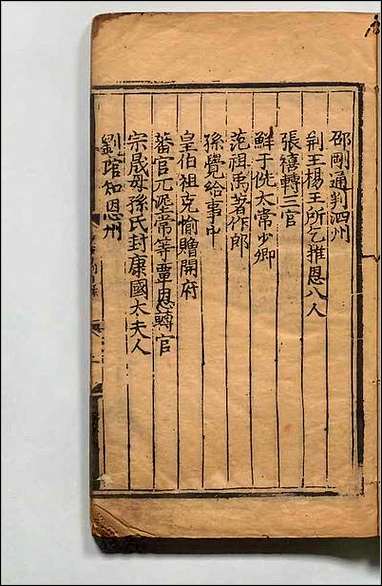 邵剛通判泗州
荆王楊王所乞推恩八人
張禧轉三官
鮮于侁太常少卿
范祖禹著作郎
孫覺給事中
皇伯祖克愉贈開府
蕃官兀泥常等覃恩轉官
宗晟母孫氏封康國太夫人
劉琯知恩州